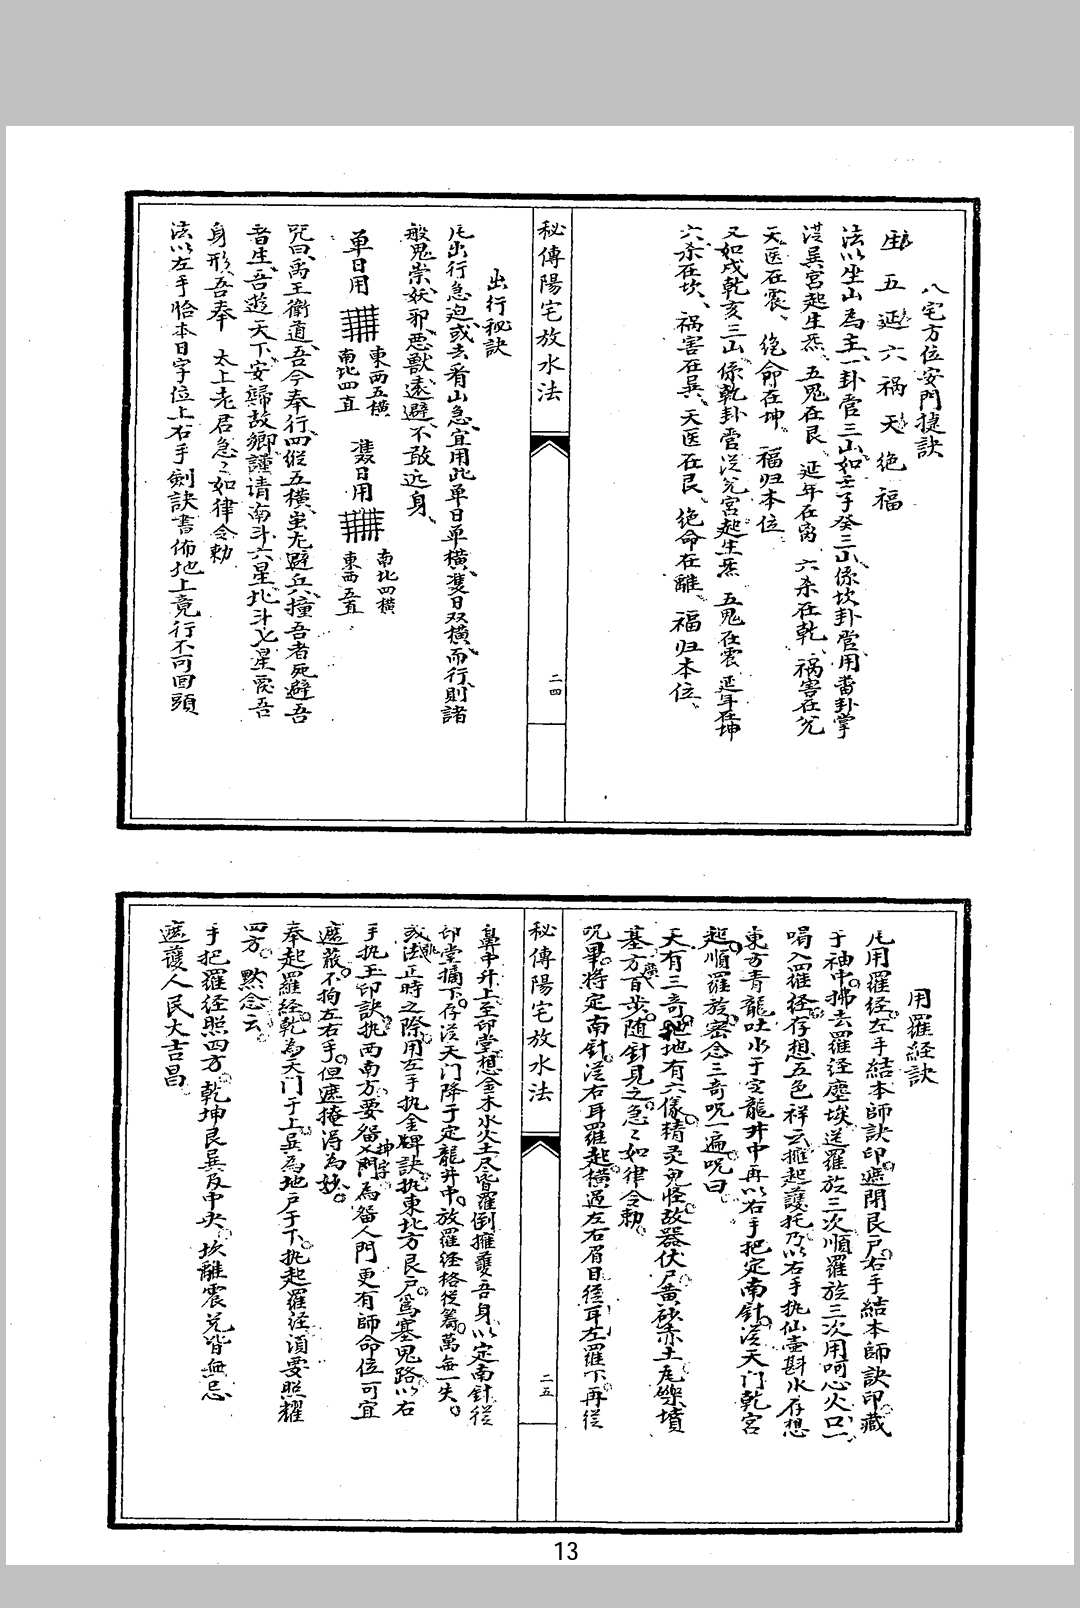 八宅方位安門捷訣
生五延六祸天绝福
法以坐山為主一卦管三山如壬子癸三山係坎卦管用番卦掌
從巽宮起生炁、五鬼在艮、延年在离、六杀在乾、祸害在兌
天医在震、绝命在坤、福归本位、
又如戌乾亥三山係乾卦管從兌宮起生炁、五鬼在震、延年在坤
六杀在坎、祸害在巽、天医在艮、绝命在離、福归本位、
秘傳陽宅放水法
二四
出行秘訣
凡出行急迫或去看山急宜用此单日单横隻日双横而行則諸
般鬼祟妖邪惡獸遠避不敢近身、
单日用 東西五横 南北四直 隻日用 南北四横 東西五直
咒曰、禹王衛道吾今奉行四從五横蚩尤避兵撞吾者死避吾
者生吾遊天下安歸故鄉謹请南斗六星北斗七星震吾
身形吾奉 太上老君急々如律令勅
法以左手恰本日字位上右手劍訣書佈地上竟行不可回頭
用羅經訣
凡用羅經左手結本師訣印遮閉艮戶。右手結本師訣印藏
于袖中。拂去羅經塵埃。送羅旋三次順羅旋三次用呵心火口一
喝入羅經存想五色祥云擁起護托乃以右手执仙壷斟水存想
東方青龍吐水于空龍井中再以右手把定南針。從天门乾宮
起。順羅旋。密念三奇咒一遍。咒曰
天有三奇。地有六儀。精灵鬼怪。故器伏尸。黄砂赤土。瓦礫墳
墓。方百步。随針見之。急々如律令勅。
咒畢。將定南針。從右耳羅起。横過左右眉目從耳左羅下再從
秘傳陽宅放水法
二五
鼻中升上至印堂想金木水火土尽皆羅倒擁護吾身以定南針從
印堂摘下。存從天门降于定龍井中。放羅經格從籌。萬每一失。
或法正時之際。用左手执金牌訣执東北方艮戶。爲塞鬼路以右
手执玉印訣执西南方。要留坤字門為留人門更有師命位可宜
遮蔽。不拘左右手。但遮掩得為妙。
奉起羅經。乾為天门于上。巽為地户于下。执起羅經須要照耀
四方。默念云。
手把羅经照四方。乾坤艮巽及中央。坎離震兑皆無忌
遮護人民大吉昌。
13